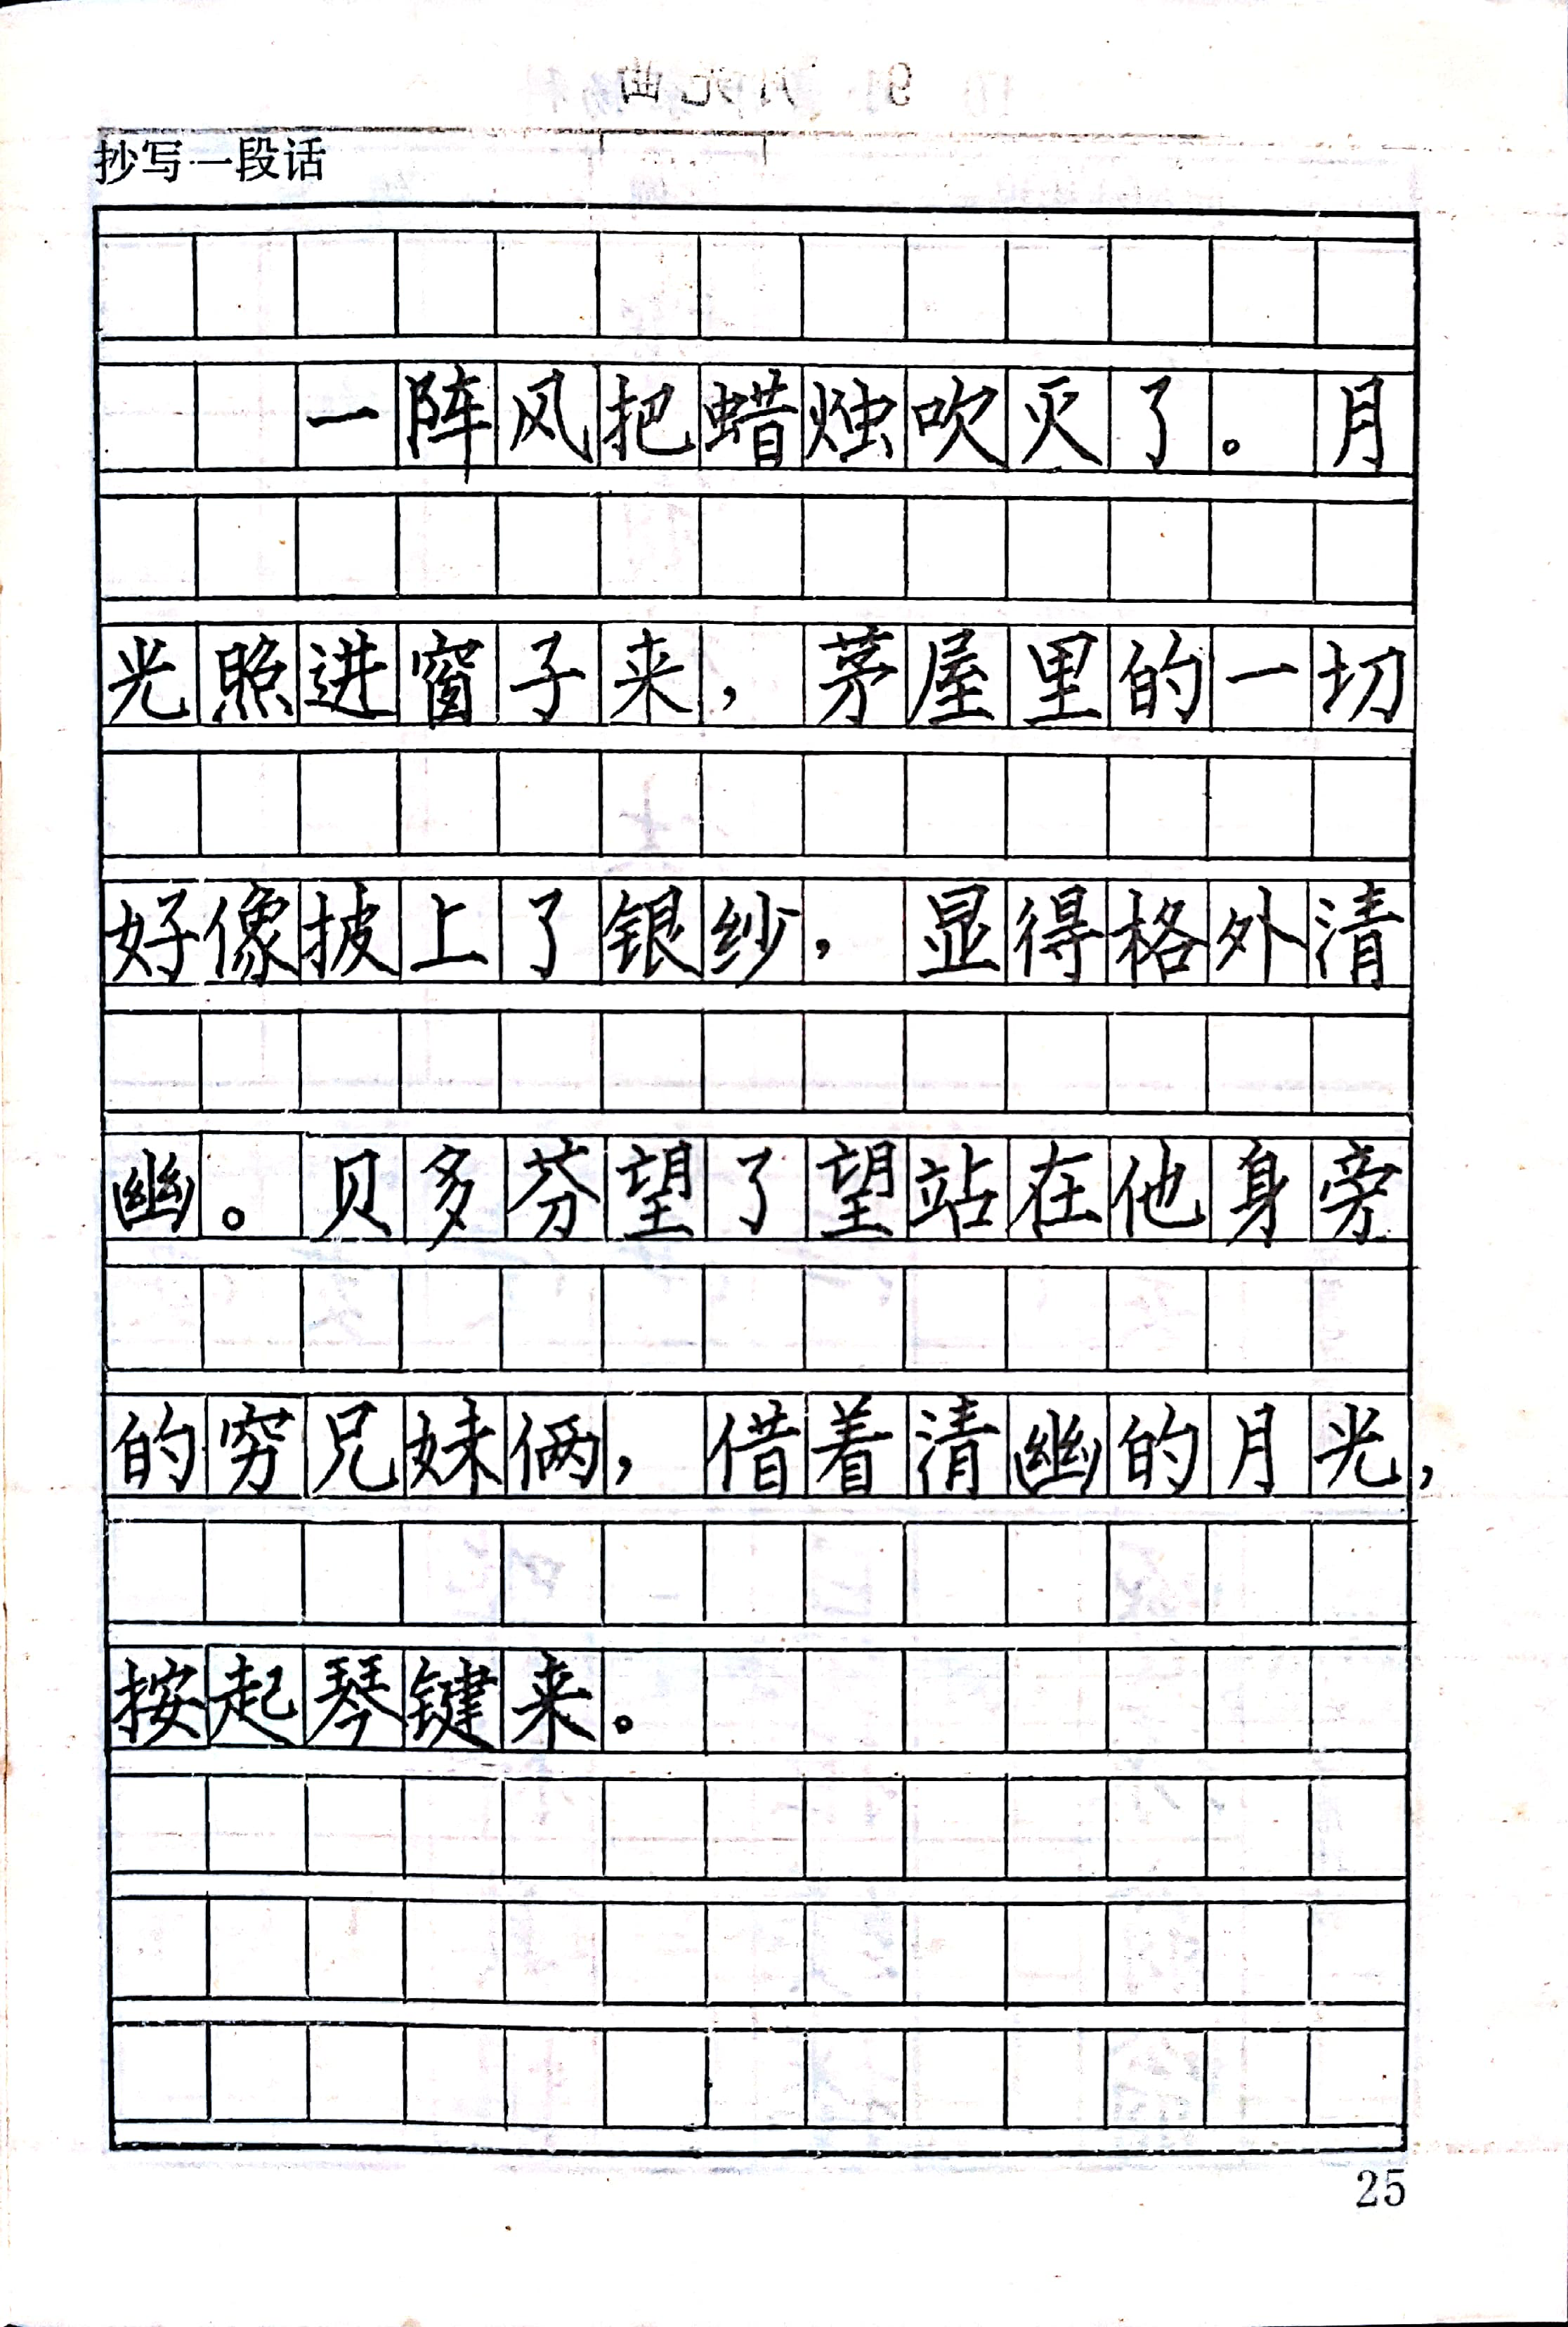 抄写一段话
一阵风把蜡烛吹灭了。月
光照进窗子来，茅屋里的一切
好像披上了银纱，显得格外清
幽。贝多芬望了望站在他身旁
的穷兄妹俩，借着清幽的月光，
按起琴键来。
25